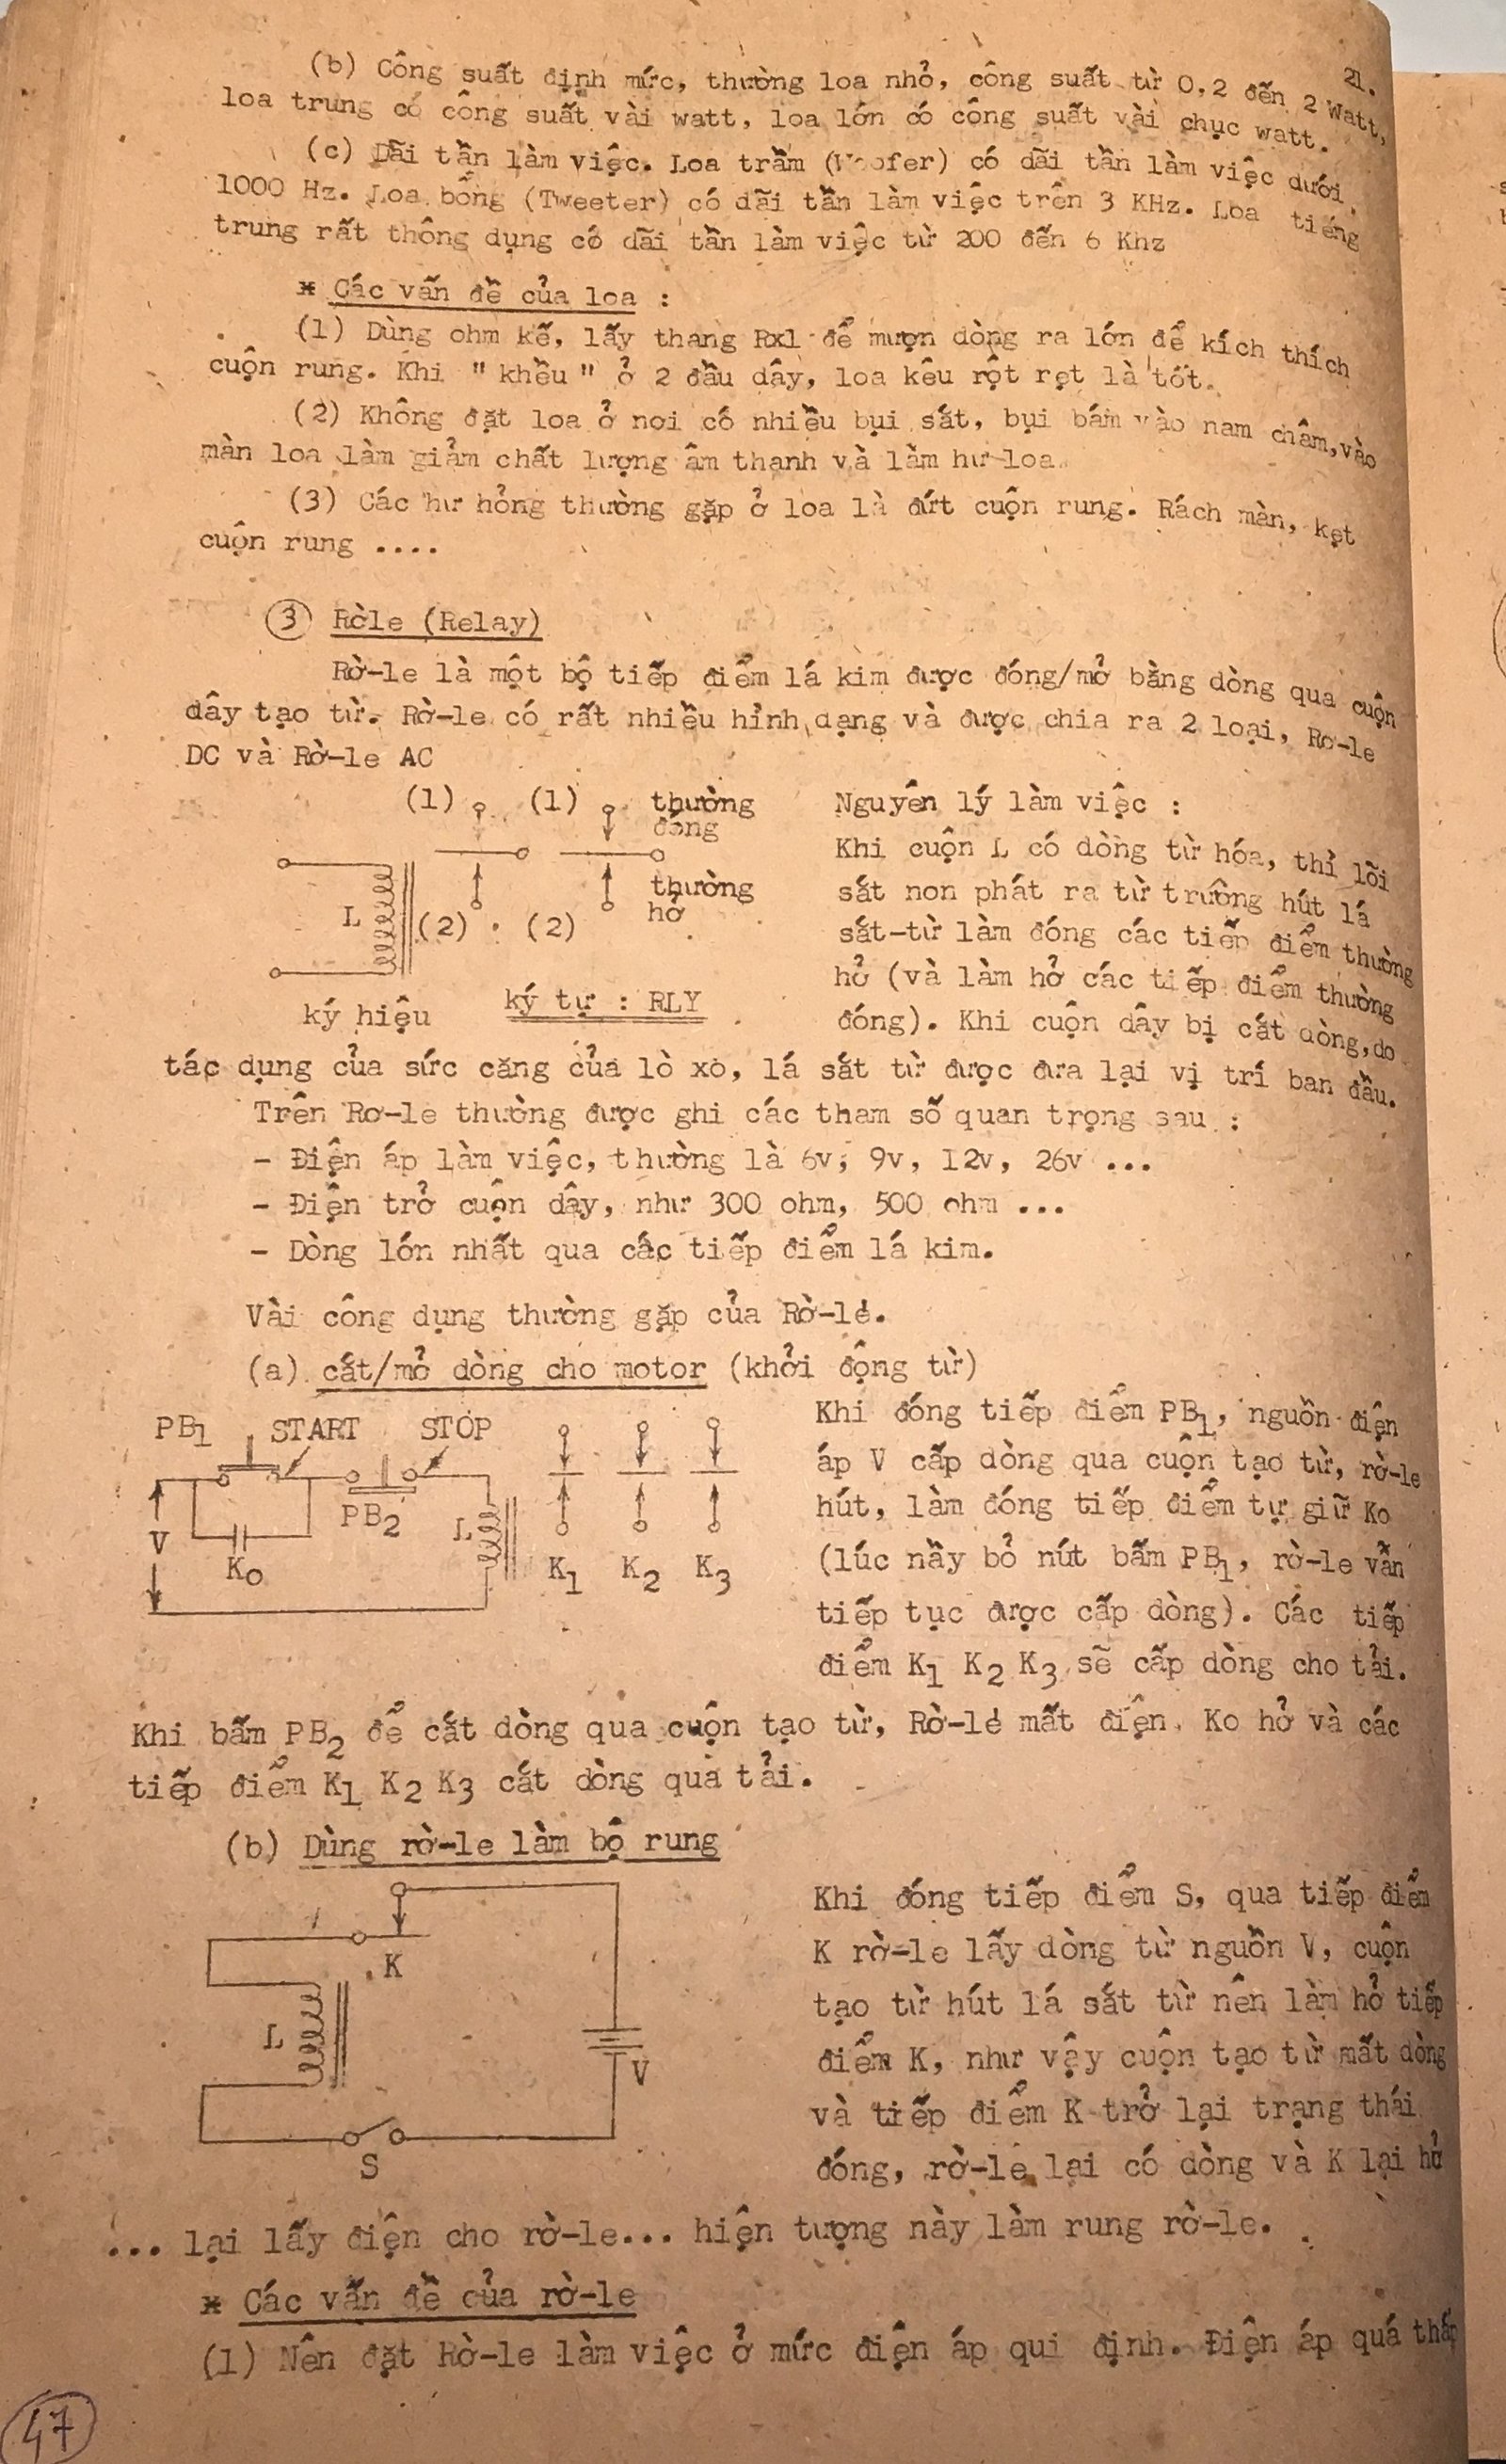 21.
(b) Công suất định mức, thường loa nhỏ, công suất từ 0,2 đến 2 Watt,
loa trung có công suất vài watt, loa lớn có công suất vài chục watt.
(c) Dãi tần làm việc. Loa trầm (Woofer) có dãi tần làm việc dưới
1000 Hz. Loa bổng (Tweeter) có dãi tần làm việc trên 3 KHz. Loa tiếng
trung rất thông dụng có dãi tần làm việc từ 200 đến 6 Khz
* Các vấn đề của loa :
(1) Dùng ohm kế, lấy thang Rx1 để mượn dòng ra lớn để kích thích
cuộn rung. Khi " khều " ở 2 đầu dây, loa kêu rột rẹt là tốt.
(2) Không đặt loa ở nơi có nhiều bụi sắt, bụi bám vào nam châm, vào
màn loa làm giảm chất lượng âm thanh và làm hư loa.
(3) Các hư hỏng thường gặp ở loa là đứt cuộn rung. Rách màn, kẹt
cuộn rung ....
3 Rờle (Relay)
Rờ-le là một bộ tiếp điểm lá kim được đóng/mở bằng dòng qua cuộn
dây tạo từ. Rờ-le có rất nhiều hình dạng và được chia ra 2 loại, Rơ-le
DC và Rờ-le AC
(1) (1) thường
đóng
thường
hở
L (2) (2)
ký hiệu ký tự : RLY
Nguyên lý làm việc :
Khi cuộn L có dòng từ hóa, thì lõi
sắt non phát ra từ trường hút lá
sắt-từ làm đóng các tiếp điểm thường
hở (và làm hở các tiếp điểm thường
đóng). Khi cuộn dây bị cắt dòng, do
tác dụng của sức căng của lò xo, lá sắt từ được đưa lại vị trí ban đầu.
Trên Rơ-le thường được ghi các tham số quan trọng sau :
- Điện áp làm việc, thường là 6v, 9v, 12v, 26v ...
- Điện trở cuộn dây, như 300 ohm, 500 ohm ...
- Dòng lớn nhất qua các tiếp điểm lá kim.
Vài công dụng thường gặp của Rờ-le.
(a) cắt/mở dòng cho motor (khởi động từ)
PB1 START STOP
PB2
V K0 L K1 K2 K3
Khi đóng tiếp điểm PB1, nguồn điện
áp V cấp dòng qua cuộn tạo từ, rờ-le
hút, làm đóng tiếp điểm tự giữ Ko
(lúc nầy bỏ nút bấm PB1, rờ-le vẫn
tiếp tục được cấp dòng). Các tiếp
điểm K1 K2 K3 sẽ cấp dòng cho tải.
Khi bấm PB2 để cắt dòng qua cuộn tạo từ, Rờ-le mất điện, Ko hở và các
tiếp điểm K1 K2 K3 cắt dòng qua tải.
(b) Dùng rờ-le làm bộ rung
K
L
V
S
Khi đóng tiếp điểm S, qua tiếp điểm
K rờ-le lấy dòng từ nguồn V, cuộn
tạo từ hút lá sắt từ nên làm hở tiếp
điểm K, như vậy cuộn tạo từ mất dòng
và tiếp điểm K trở lại trạng thái
đóng, rờ-le lại có dòng và K lại hở
... lại lấy điện cho rờ-le... hiện tượng này làm rung rờ-le.
* Các vấn đề của rờ-le
(1) Nên đặt Rờ-le làm việc ở mức điện áp qui định. Điện áp quá thấp
47